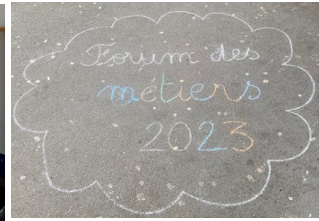 Forum des
métiers
2023